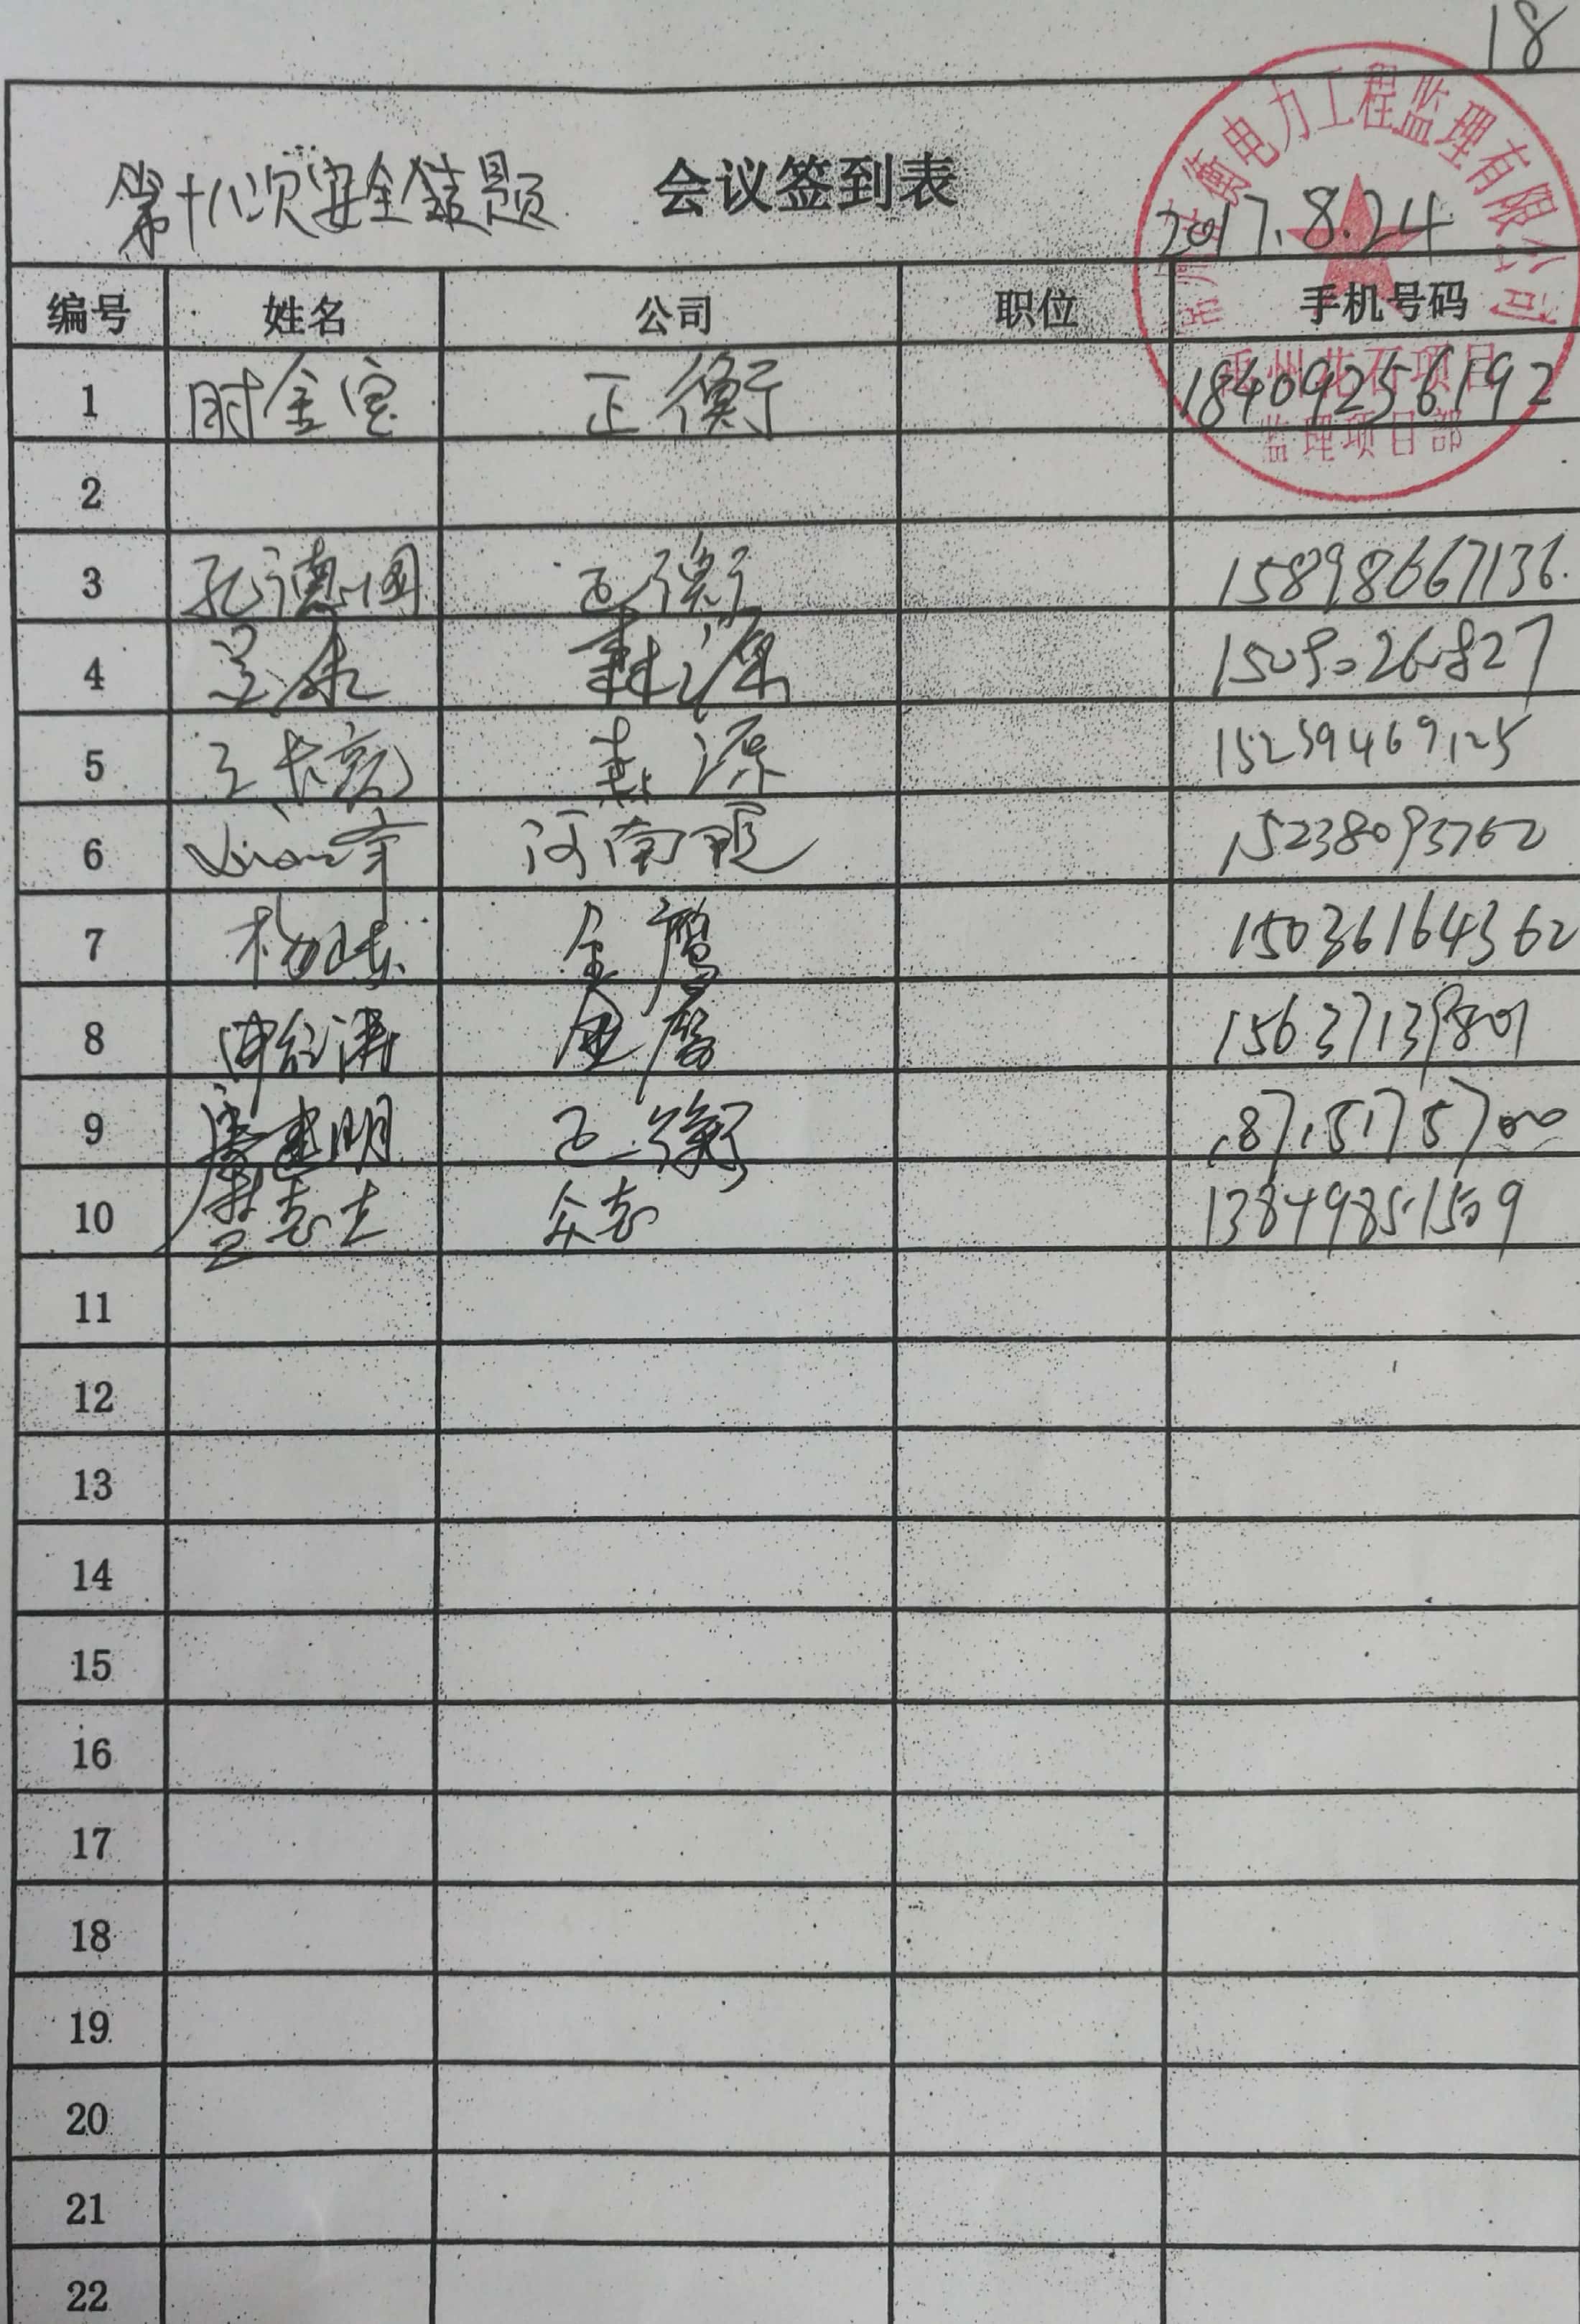 18
第十八次安全 题 会议签到表
2017.8.24
衡电力工程监理有限公司
禹州花石项目
监理项目部
编号 姓名 公司 职位 手机号码
1 时金宝 正衡 18409256192
2
3 孔德国 正衡 15898667136
4 森源 15090260827
5 森源 15239469125
6 河南 15238093762
7 杨 金鹰 15036164362
8 金鹰 15637139801
9 康建明 正衡 18715175700
10 志 13849851509
11
12
13
14
15
16
17
18
19
20
21
22